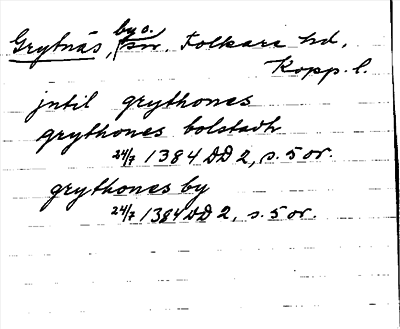 Grytnäs, by o. sn. Folkare hd,
Kopp. l.
jntil grythones
grythones bolstadh
24/7 1384 DD 2, s. 5 or.
grythones by
24/7 1384 DD 2, s. 5 or.